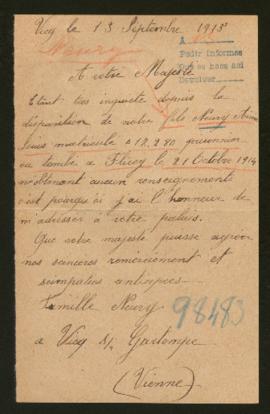 Vicq le 13 Septembre 1915
A
Pedir informes
Que se hace así
Devolver
Neury
A votre Majesté
Etant tres inquiete depuis la
disparition de notre fils Neury
Louis matricule prisonnier
ou tombé a le 21 Octobre 1914
n'obtenant aucun renseignements
c'est pourquoi j'ai l'honneur de
m'adresser à votre palais.
Que votre majesté puisse agréer
nos sincères remerciement et
simpaties antisipées
Famille Neury
98483
a Vicq s/ Gartempe
(Vienne)